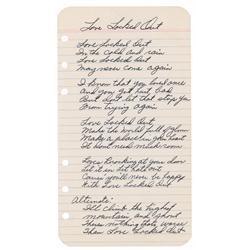 Love Locked Out
Love Locked Out
In the cold and rain
Love Locked Out
May never come again
I know that you loved once
And you got hurt bad
But don't let that stop you
From trying again
Love Locked Out
Make the world full of
Make a place in your heart
It won't need much room
Love's knocking at your door
Let it in let hate out
Cause you'll never be happy
With Love Locked Out
Alternate:
I'll climb the highest
mountain and shout
There's nothing worse
Than Love Locked Out